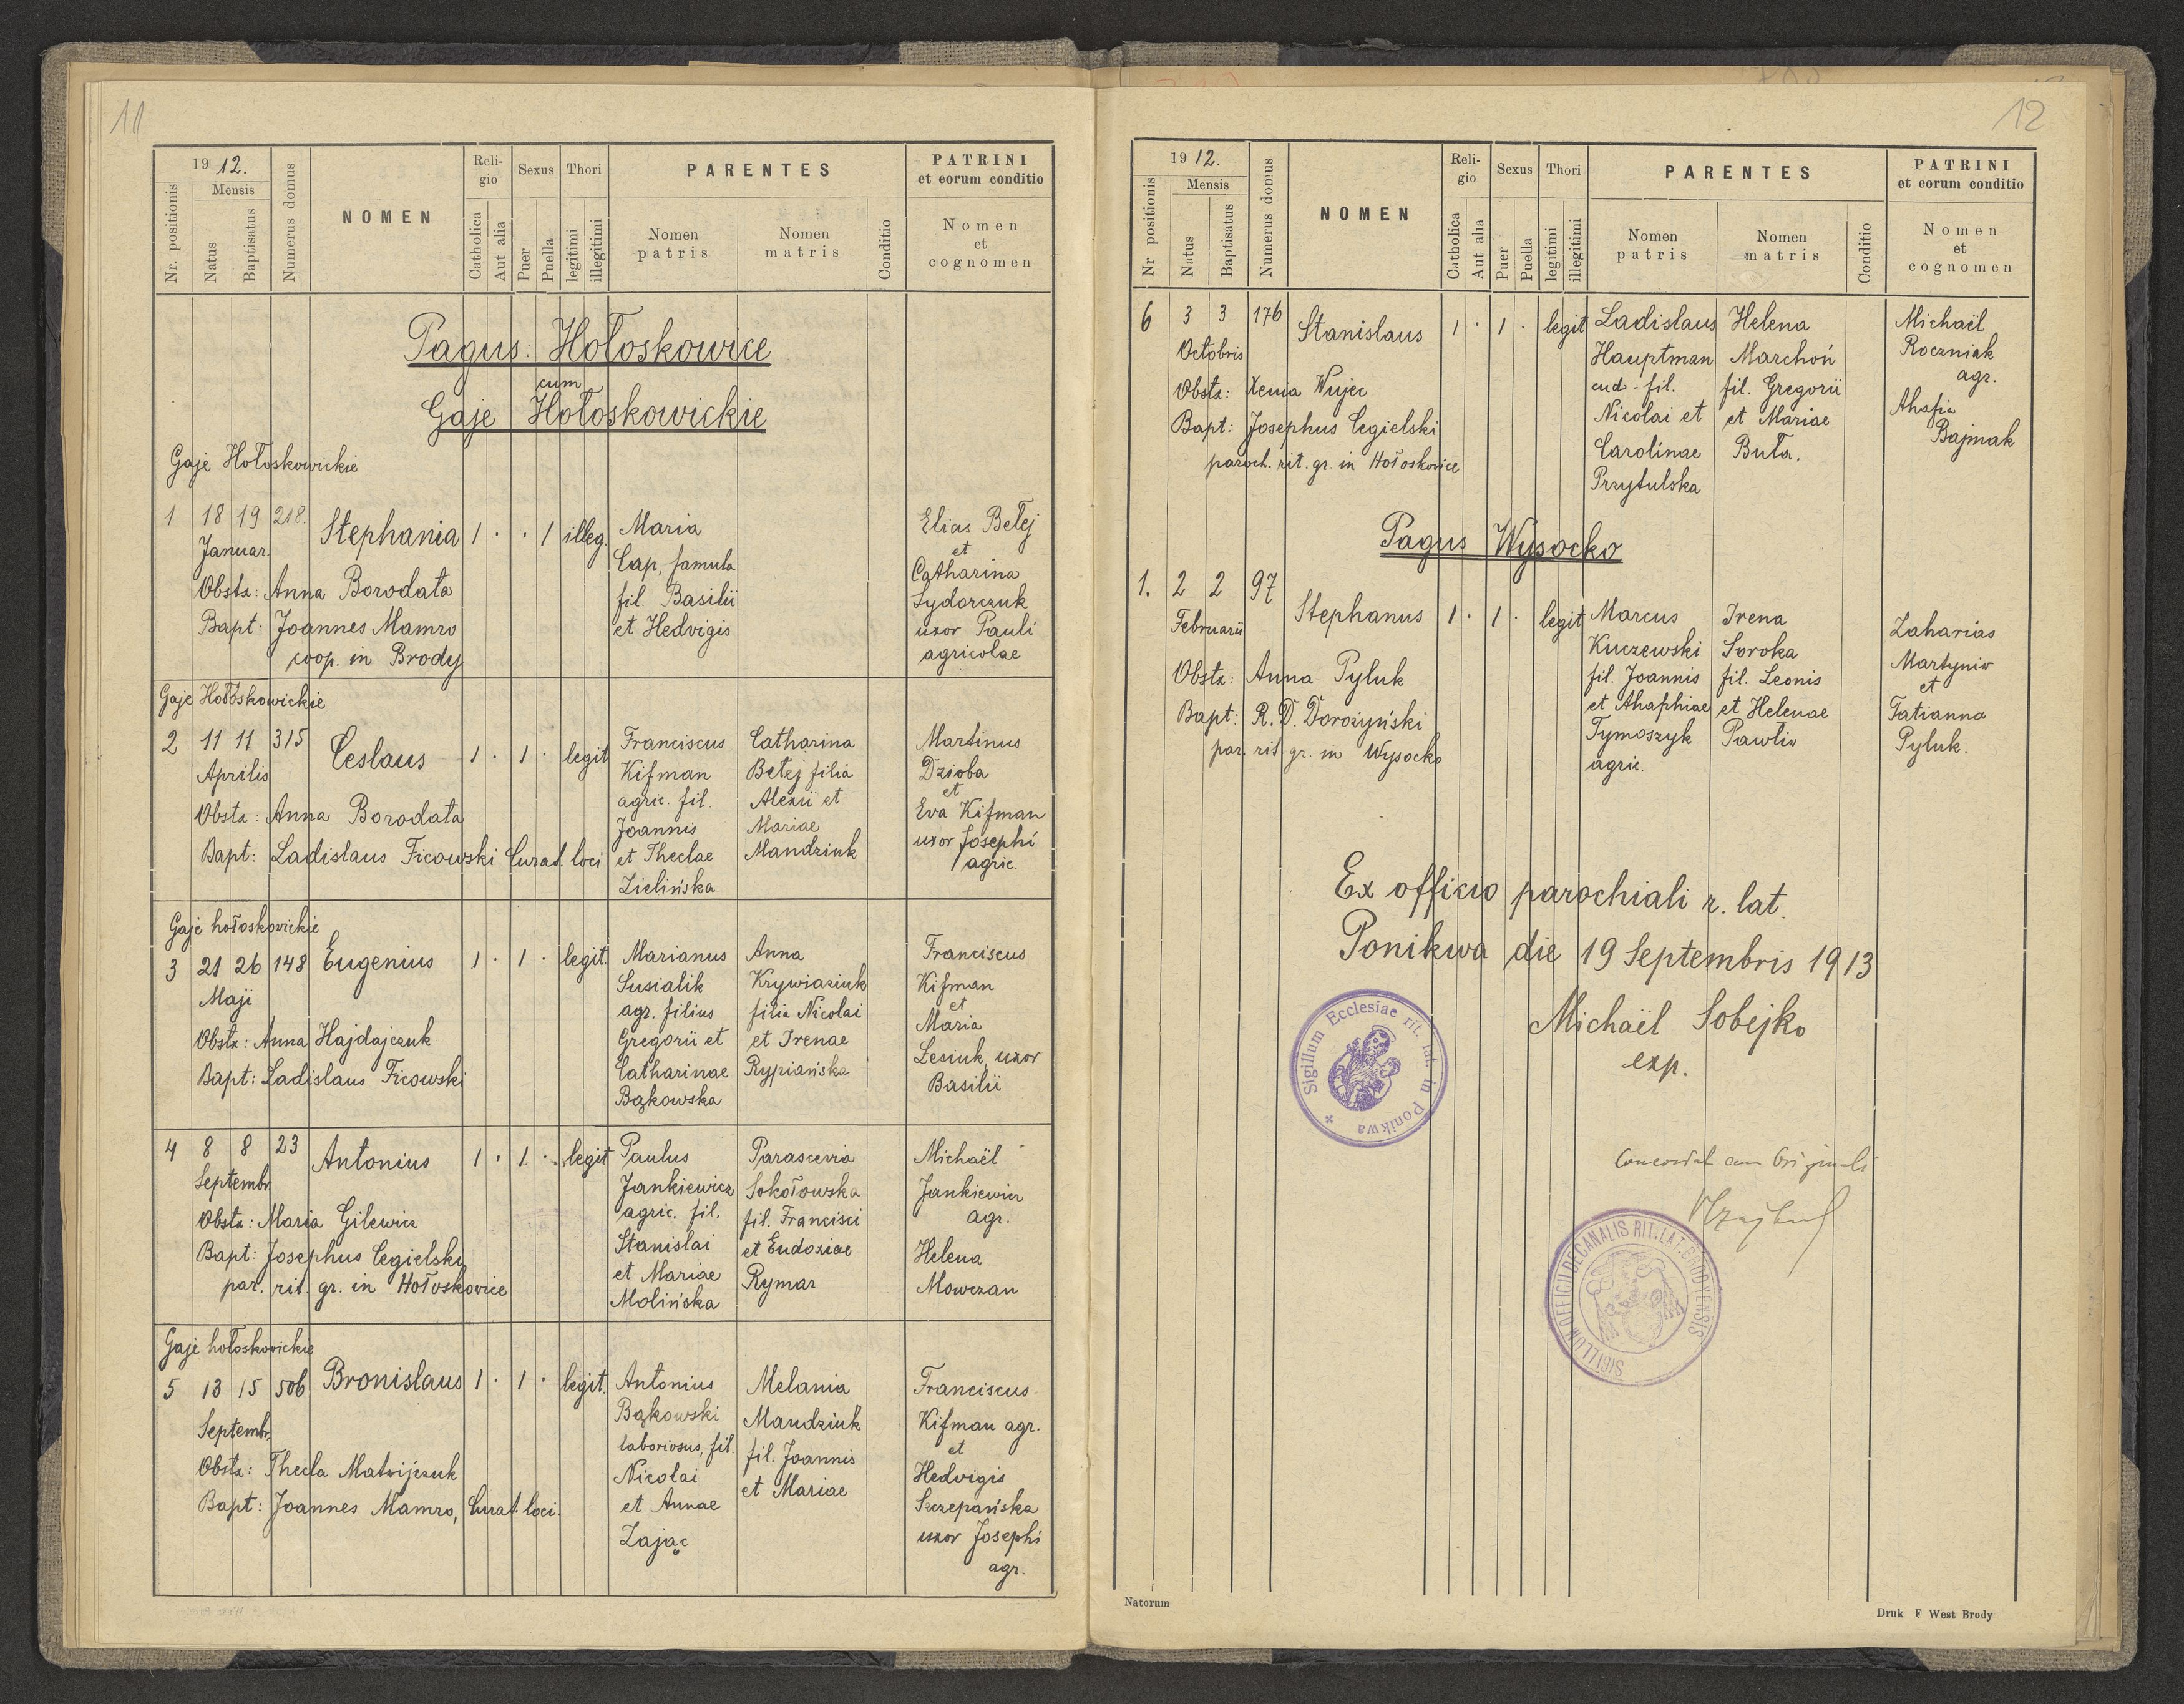 11
19 12.
Mensis
Nr. positionis
Natus
Baptisatus
Numerus domus
NOMEN
Reli-
gio
Catholica
Aut alia
Sexus
Puer
Puella
Thori
legitimi
illegitimi
PARENTES
Nomen
patris
Nomen
matris
Conditio
PATRINI
et eorum conditio
Nomen
et
cognomen
Pagus: Hołoskowice
cum
Gaje Hołoskowickie
Gaje Hołoskowickie
1 18 19 218. Stephania 1 · · 1 illeg. Maria Elias Betej
Januar. Cap, famula et
Obstx: Anna Borodata fil. Basilii Catharina
Bapt: Joannes Mamro et Hedvigis Sydorczuk
coop. in Brody uxor Pauli
agricolae
Gaje Hołoskowickie
2 11 11 315 Ceslaus 1 · 1 · legit Franciscus Catharina Martinus
Aprilis Kifman Betej filia Dzioba
agric. fil. Alexii et et
Obstx: Anna Borodata Joannis Mariae Eva Kifman
Bapt: Ladislaus Ficowski Curat. loci et Theclae Mandziuk uxor Josephi
Zielińska agric.
Gaje hołoskowickie
3 21 26 148 Eugenius 1 · 1 · legit. Marianus Anna Franciscus
Maji Susialik Krywiaziuk Kifman
agr. filius filia Nicolai et
Obstx: Anna Hajdajczuk Gregorii et et Irenae Maria
Bapt: Ladislaus Ficowski Catharinae Rypiańska Lesiuk, uxor
Bąkowska Basilii
4 8 8 23 Antonius 1 · 1 · legit Paulus Parascevia Michaël
Septembr. Jankiewicz Sokołowska Jankiewicz
Obstx: Maria Gilewicz agric. fil. fil. Francisci agr.
Bapt: Josephus Cegielski Stanislai et Eudoxiae Helena
par. rit. gr. in Hołoskowice et Mariae Rymar Mowczan
Molińska
Gaje hołoskowickie
5 13 15 506 Bronislaus 1 · 1 · legit. Antonius Melania Franciscus
Septembr. Bąkowski Mandziuk Kifman agr.
laboriosus, fil. fil. Joannis et
Obstx: Thecla Matwijczuk Nicolai et Mariae Hedvigis
Bapt: Joannes Mamro, Curat. loci. et Annae Szczepańska
Zając uxor Josephi
agr.
12
19 12.
Mensis
Nr positionis
Natus
Baptisatus
Numerus domus
NOMEN
Reli-
gio
Catholica
Aut alia
Sexus
Puer
Puella
Thori
legitimi
illegitimi
PARENTES
Nomen
patris
Nomen
matris
Conditio
PATRINI
et eorum conditio
Nomen
et
cognomen
6 3 3 176 Stanislaus 1 · 1 · legit Ladislaus Helena Michaël
Octobris Hauptman Marchoń Roczniak
Obstx: Xenia Wujec cud - fil. fil. Gregorii agr.
Bapt: Josephus Cegielski Nicolai et et Mariae Ahafia
paroch. rit. gr. in Hołoskowice Carolinae Buła. Bajmak
Przytulska
Pagus Wysocko
1. 2 2 97 Stephanus 1 · 1 · legit Marcus Irena Zaharias
Februarii Kuczewski Soroka Martyniw
Obstx: Anna Pyluk fil. Joannis fil. Leonis et
Bapt: R. D. Dorożyński et Ahaphiae et Helenae Tatianna
par. rit gr. in Wysocko Tymoszyk Pawliv Pyluk.
agric.
Ex officio parochiali r. lat.
Ponikwa die 19 Septembris 1913
Michaël Sobejko
exp.
Sigillum Ecclesiae rit. lat. in Ponikwa
Concordat cum Originali
SIGILLUM OFFICII DECANALIS RIT. LAT. BRODYENSIS
Natorum
Druk F West Brody